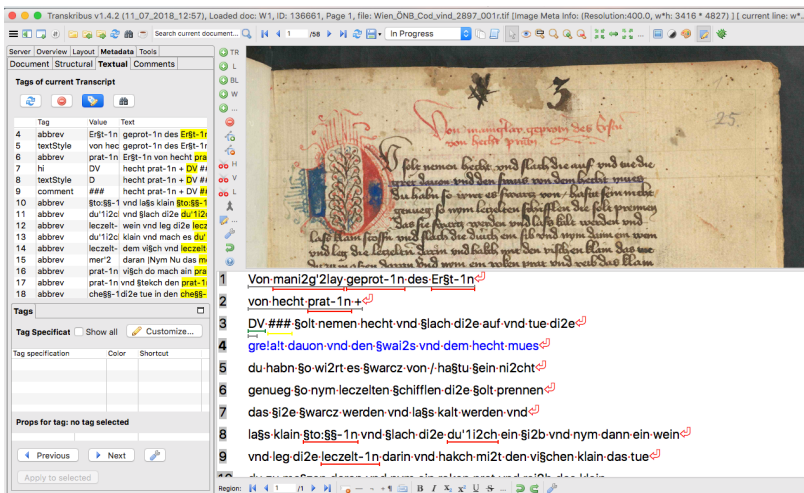 Transkribus v1.4.2 (11_07_2018_12:57), Loaded doc: W1, ID: 136661, Page 1, file: Wien_ÖNB_Cod_vind_2897_001r.tif [Image Meta Info: (Resolution:400.0, w*h: 3416 * 4827) ] [ current line: w*
Search current document... 1 /58 In Progress
Server Overview Layout Metadata Tools
Document Structural Textual Comments
Tags of current Transcript
Tag Value Text
4 abbrev Er§t-1n geprot-1n des Er§t-1n
5 textStyle von hec geprot-1n des Er§t-1r
6 abbrev prat-1n Er§t-1n von hecht pra
7 hi DV hecht prat-1n + DV ##
8 textStyle D hecht prat-1n + DV ##
9 comment ### hecht prat-1n + DV ##
10 abbrev §to:§§-1 vnd la§s klain §to:§§-1
11 abbrev du'1i2cl vnd §lach di2e du'1i2c
12 abbrev leczelt- wein vnd leg di2e lecz
13 abbrev du'1i2cl klain vnd mach es du'
14 abbrev leczelt- dem vi§ch vnd leczelt
15 abbrev mer'2 daran |Nym Nu das me
16 abbrev prat-1n vi§ch do mach ain pra
17 abbrev prat-1n vnd §tekch den prat-1
18 abbrev che§§-1 di2e tue in den che§§-
Tags
Tag Specificat Show all Customize...
Tag specification Color Shortcut
Props for tag: no tag selected
Previous Next
Apply to selected
TR
L
BL
W
...
H
V
L
...
25.
1 Von·mani2g'2lay·geprot-1n·des·Er§t-1n
2 von·hecht·prat-1n·+
3 DV·###·§olt·nemen·hecht·vnd·§lach·di2e·auf·vnd·tue·di2e
4 gre!a!t·dauon·vnd·den·§wai2s·vnd·dem·hecht·mues
5 du·habn·§o·wi2rt·es·§warcz·von·/·ha§tu·§ein·ni2cht
6 genueg·§o·nym·leczelten·§chifflen·di2e·§olt·prennen
7 das·§i2e·§warcz·werden·vnd·la§s·kalt·werden·vnd
8 la§s·klain·§to:§§-1n·vnd·§lach·di2e·du'1i2ch·ein·§i2b·vnd·nym·dann·ein·wein
9 vnd·leg·di2e·leczelt-1n·darin·vnd·hakch·mi2t·den·vi§chen·klain·das·tue
Region: 1 /1